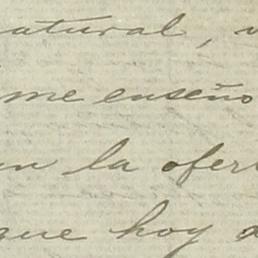 natural, v
me enseño
un la ofer
que hoy d